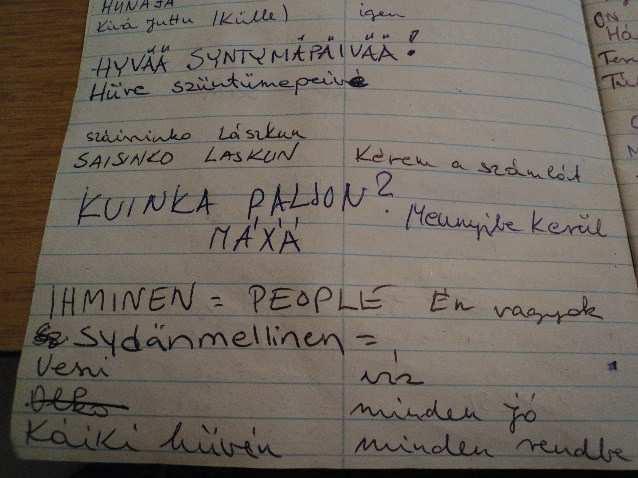 HUNAJA
Kivá juttu (Külle) igen
HYVÄÄ SYNTYMÄPÄIVÄÄ!
Hüve szüntümepeive
száininko lászkun
SAISINKO LASKUN Kérem a számlát
KUINKA PALJON? Mennyibe kerül
MÁXÁ
IHMINEN = PEOPLE Én vagyok
Sydänmellinen =
Vesi víz
minden jó
Káiki hüvén minden rendbe
ON
Há